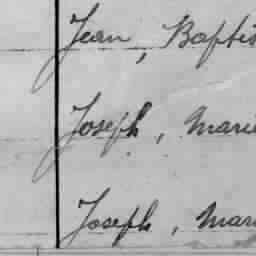 Jean, Baptis
Joseph, Marie
Joseph, Mari